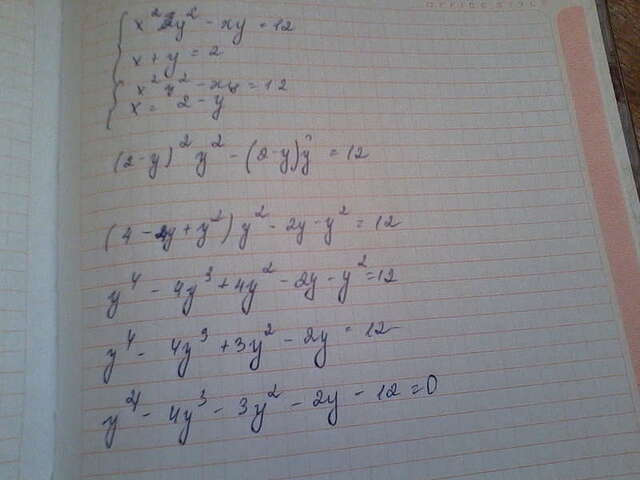 x² y² - xy = 12
x + y = 2
x² y² - xy = 12
x = 2 - y
(2-y)² y² - (2-y)y = 12
(4 - 2y + y²) y² - 2y - y² = 12
y⁴ - 4y³ + 4y² - 2y - y² = 12
y⁴ - 4y³ + 3y² - 2y = 12
y⁴ - 4y³ - 3y² - 2y - 12 = 0